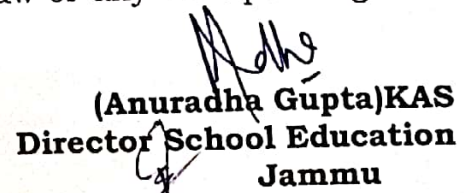 (Anuradha Gupta)KAS
Director School Education
Jammu